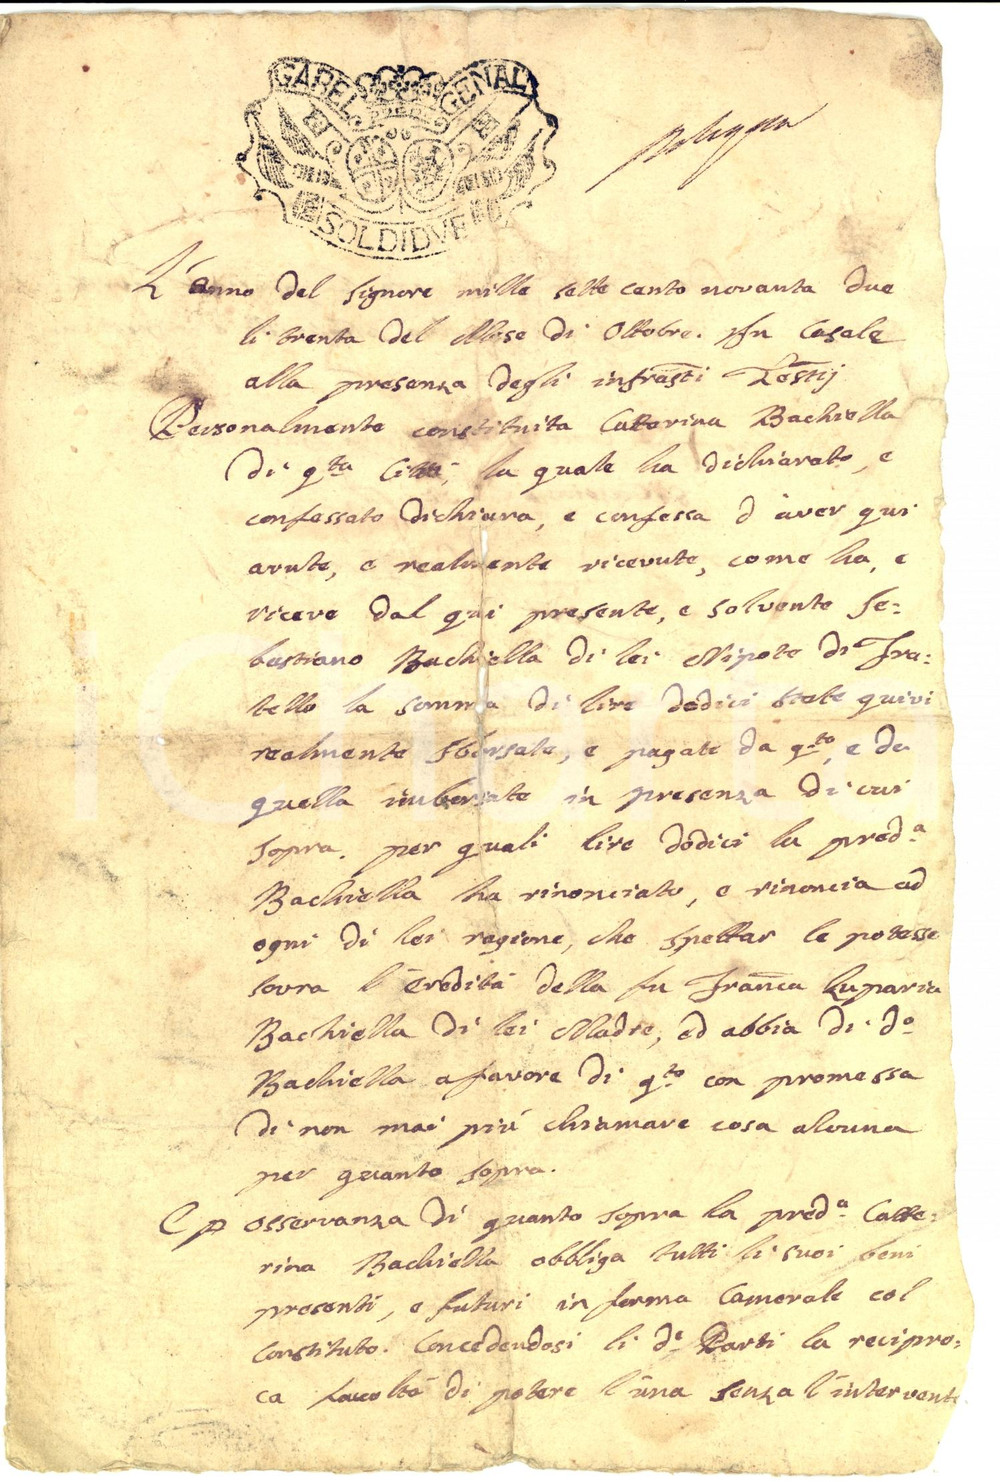 GABEL GENAL
SOLDI DVE
L'anno del Signore mille sette cento novanta due
li trenta del Mese di Ottobre. In Casale
alla presenza degli infrasti Testij
Personalmente constituita Catterina Bachiella
di qta Città, la quale ha dichiarato, e
confessato dichiara, e confessa d'aver qui
avute, e realmente ricevute, come ha, e
riceve dal qui presente, e solvente Se-
bastiano Bachiella di lei Nipote di Fra-
tello la somma di lire dodici state quivi
realmente sborsate, e pagate da qto, e da
quella imborsate in presenza di cui
sopra. per quali lire dodici la preda
Bachiella ha rinonciato, e rinoncia ad
ogni di lei ragione, che spettar le potesse
sovra l'Eredità della fu Franca Luparia
Bachiella di lei Madre, ed abbia di do
Bachiella a favore di qto con promessa
di non mai più chiamare cosa alcuna
per quanto sopra.
E p osservanza di quanto sopra la preda Catte-
rina Bachiella obbliga tutti li suoi beni
presenti, e futuri in forma Camerale col
Constituto. Concedendosi li de Parti la recipro-
ca facoltà di potere l'una senza l'intervento